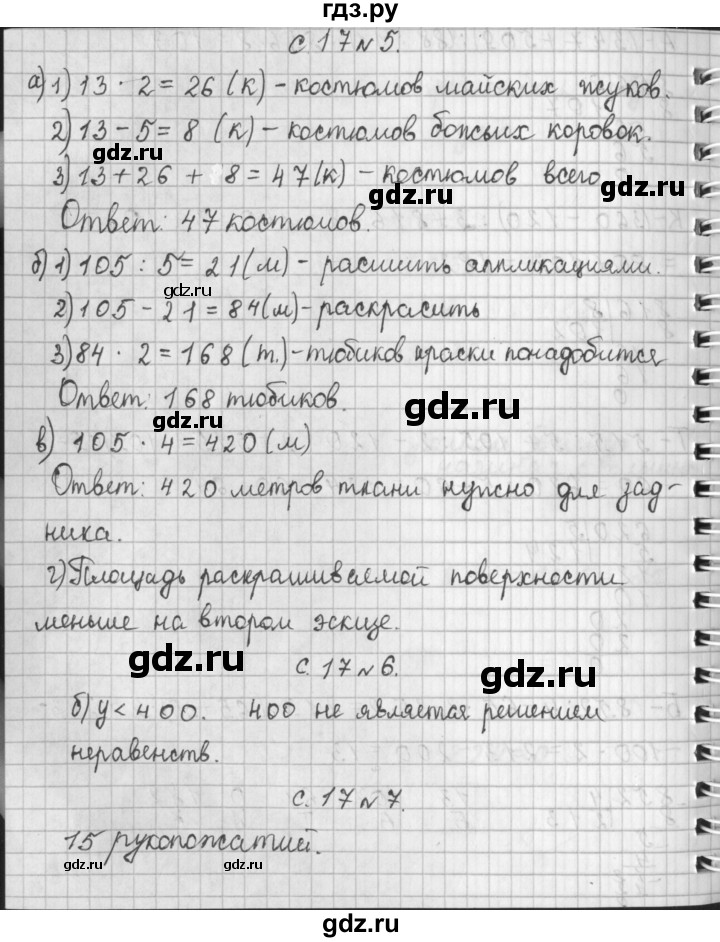 гдз.ру
с 17 № 5.
а) 1) 13 · 2 = 26 (к) - костюмов майских жуков.
2) 13 - 5 = 8 (к) - костюмов божьих коровок.
gdz.ru
3) 13 + 26 + 8 = 47 (к) - костюмов всего
gdz.ru
Ответ: 47 костюмов.
б) 1) 105 : 5 = 21 (м) - расшить аппликациями.
gdz.ru
2) 105 - 21 = 84 (м) - раскрасить
3) 84 · 2 = 168 (т.) - тюбиков краски понадобится
Ответ: 168 тюбиков.
gdz.ru
gdz.ru
в) 105 · 4 = 420 (м)
Ответ: 420 метров ткани нужно для зад-
ника.
г) Площадь раскрашиваемой поверхности
меньше на втором эскизе.
gdz.ru
с. 17 № 6.
gdz.ru
б) y < 400. 400 не является решением
неравенств.
с. 17 № 7.
15 рукопожатий.
gdz.ru
gdz.ru
gdz.ru